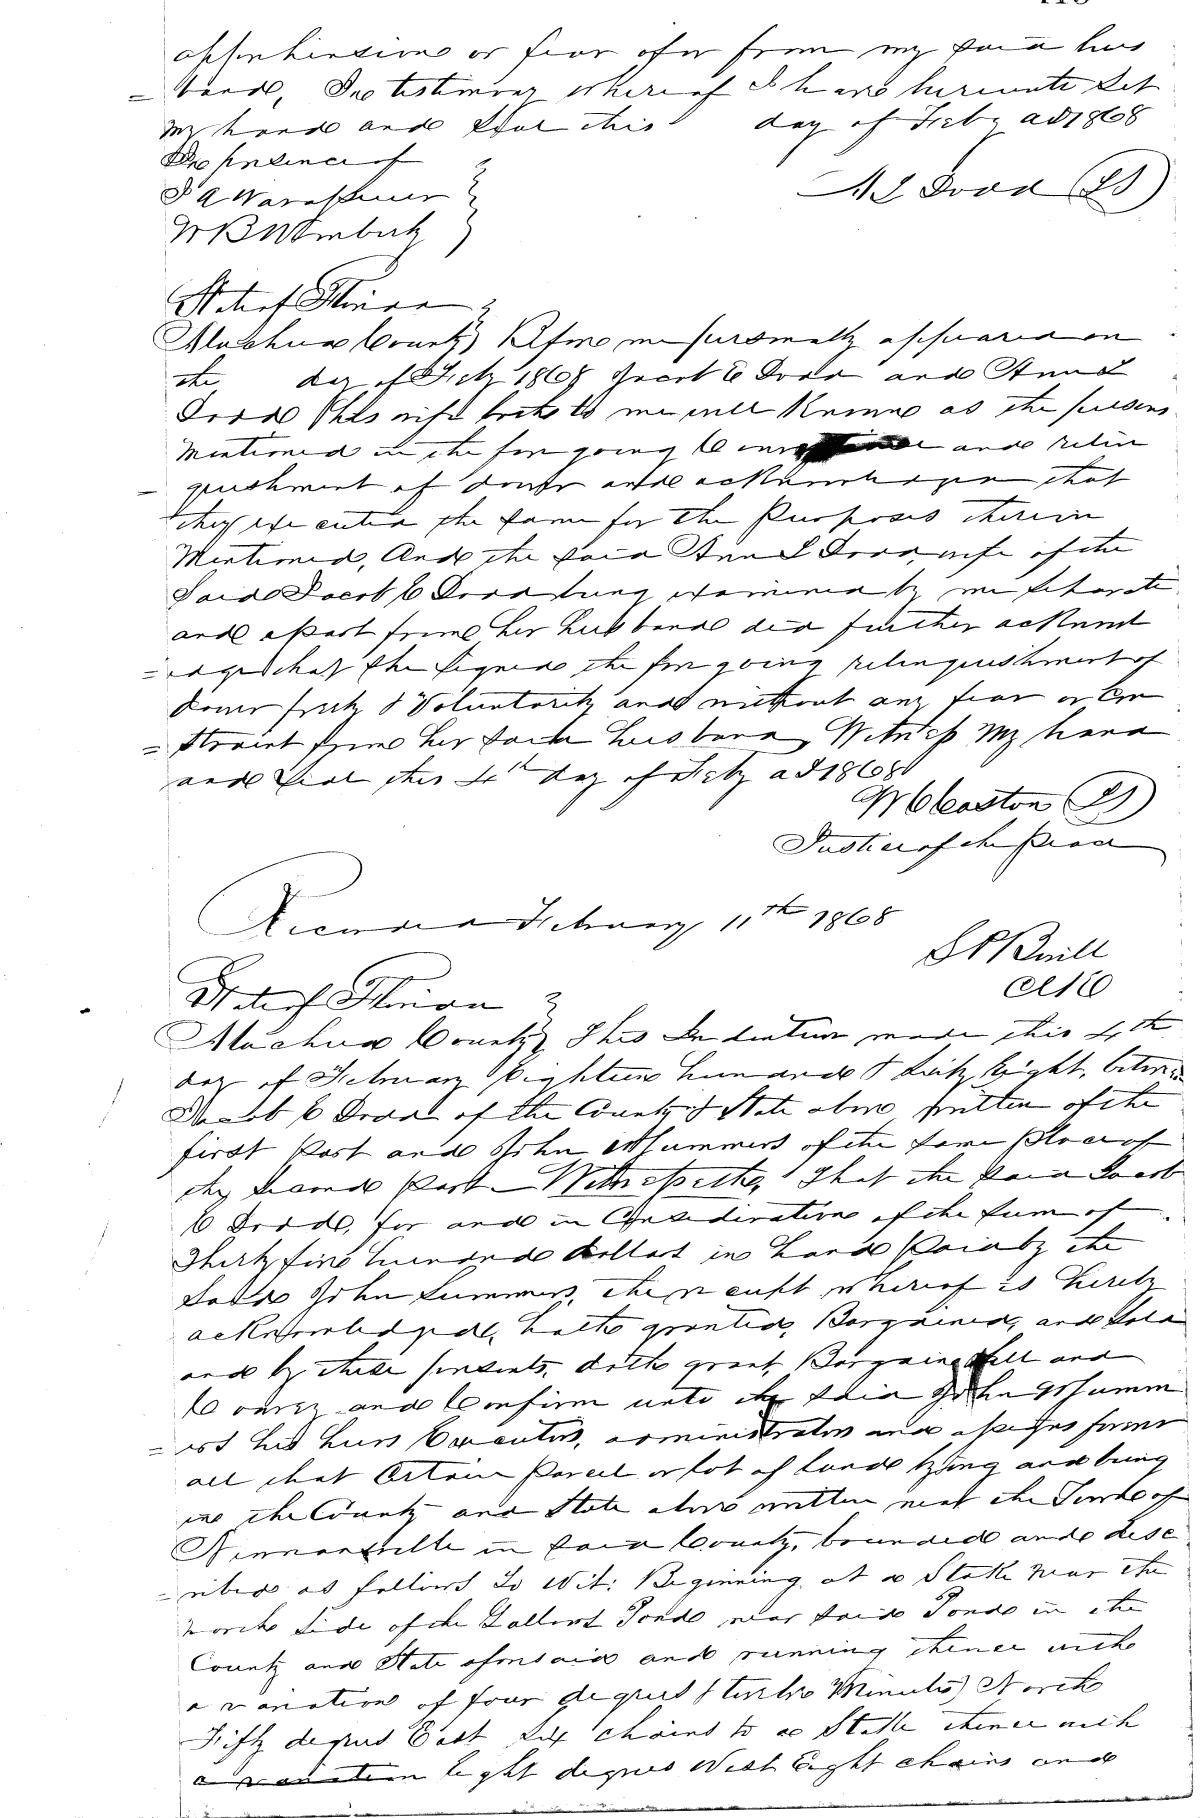 apprehension or fear of or from my said hus
= band, In testimony whereof I have hereunto set
my hand and seal this day of Feby AD 1868
In presence of
W B
A L Dodd (LS)
State of Florida }
Alachua County } Before me personally appeared on
the day of Feby 1868 Jacob C Dodd and Ann L
Dodd his wife both to me well known as the persons
mentioned in the foregoing and relin
- quishment of dower and acknowledged that
they executed the same for the Purposes therein
Mentioned, And the said Ann L Dodd, wife of the
Said Jacob C Dodd being examined by me separate
and apart from her husband did further acknowl
= edge that she signed the foregoing relinquishment of
dower freely & Voluntarily and without any fear or Con
= straint from her said husband, Witness My hand
and seal this 4th day of Feby AD 1868
W C Easton (LS)
Justice of the Peace
Recorded February 11th 1868
Clk
State of Florida }
Alachua County } This Indenture made this 4th
day of February Eighteen hundred & Sixty Eight, between
Jacob C Dodd of the County & State above written of the
first Part and John M Summers of the same Place of
the second Part Witnesseth, That the said Jacob
C Dodd, for and in Consideration of the sum of
Thirty five hundred dollars in hand Paid by the
said John Summers, the receipt whereof is hereby
acknowledged, hath granted, Bargained, and Sold
and by these presents, doth grant, Bargain, Sell and
Convey and Confirm unto the said John M Summ
= ers his heirs Executors, administrators and assigns forever
all that Certain Parcel or lot of land lying and being
in the County and State above written near the Town of
Newnansville in said County, bounded and desc
- ribed as follows To Wit: Beginning at a Stake near the
north side of the Gallows Pond near said Pond in the
County and State aforesaid and running thence with
a variation of four degrees (twelve Minutes) North
Fifty degrees East six chains to a Stake thence with
a variation Eight degrees West Eight chains and